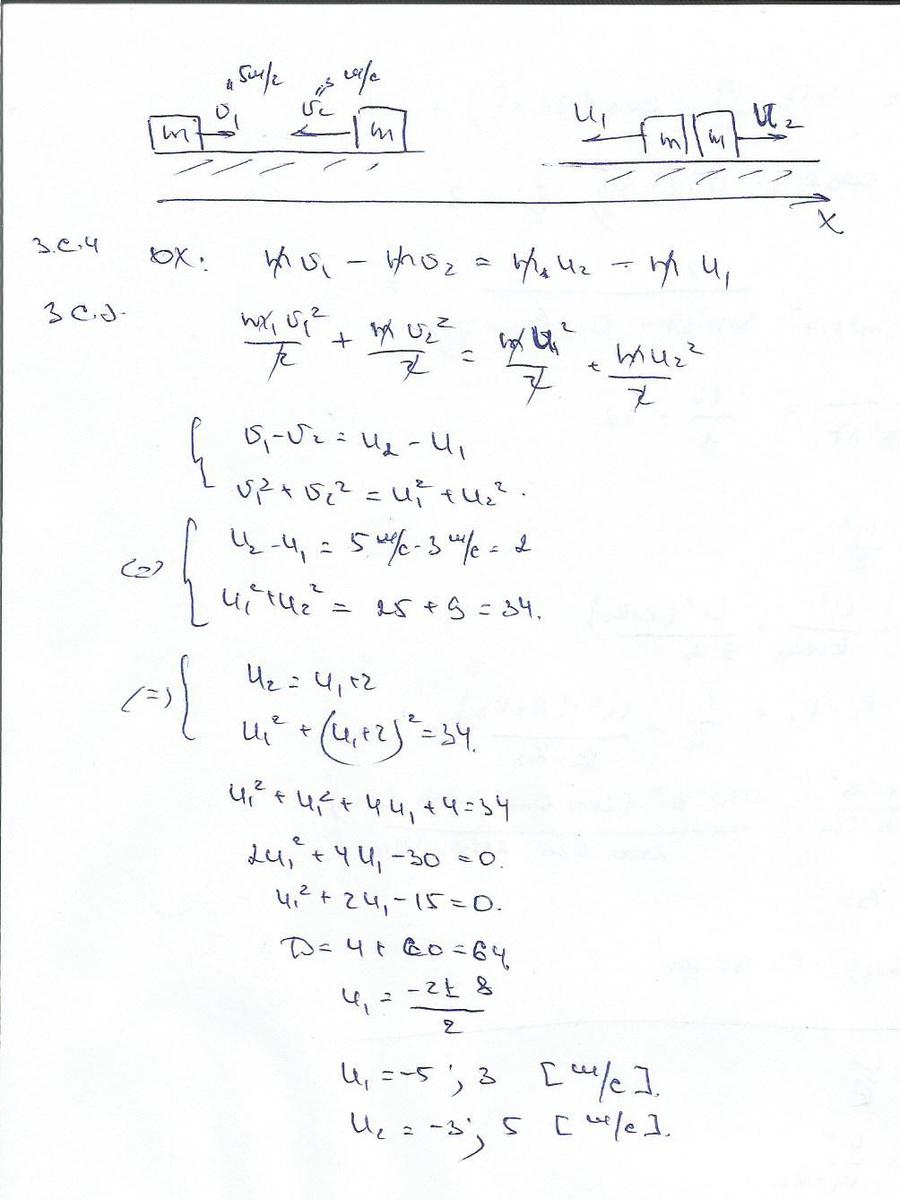 5м/с 3 м/с
m υ₁ υ₂ m u₁ m m u₂
x
З.С.И OX: mυ₁ - mυ₂ = mu₂ - mu₁
З.С.Э. mυ₁²/2 + mυ₂²/2 = mu₁²/2 + mu₂²/2
{ υ₁ - υ₂ = u₂ - u₁
υ₁² + υ₂² = u₁² + u₂².
(=) { u₂ - u₁ = 5 м/с - 3 м/с = 2
u₁² + u₂² = 25 + 9 = 34.
(=) { u₂ = u₁ + 2
u₁² + (u₁+2)² = 34.
u₁² + u₁² + 4u₁ + 4 = 34
2u₁² + 4u₁ - 30 = 0.
u₁² + 2u₁ - 15 = 0.
D = 4 + 60 = 64
u₁ = (-2 ± 8)/2
u₁ = -5 ; 3 [м/с].
u₂ = -3 ; 5 [м/с].